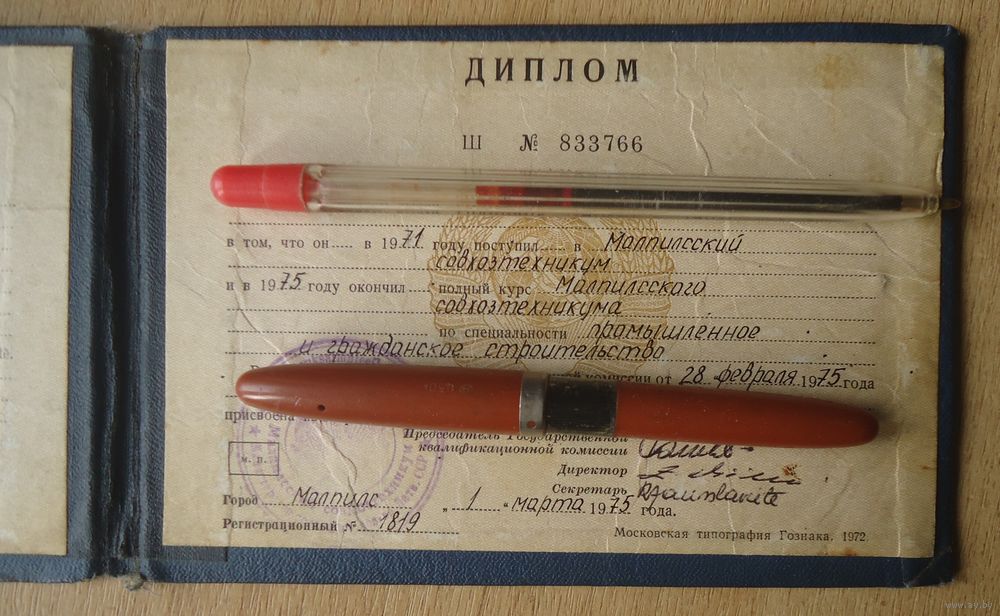 ДИПЛОМ
Ш № 833766
в том, что он в 1971 году поступил в Малпилсский
совхозтехникум
и в 1975 году окончил полный курс Малпилсского
совхозтехникума
по специальности промышленное
и гражданское строительство
комиссии от 28 февраля 1975 года
присвоена
Председатель Государственной
квалификационной комиссии
м. п.
Директор
Секретарь
Город Малпилс „ 1 “ марта 1975 года.
Регистрационный № 1819
Московская типография Гознака. 1972.
www.ay.by